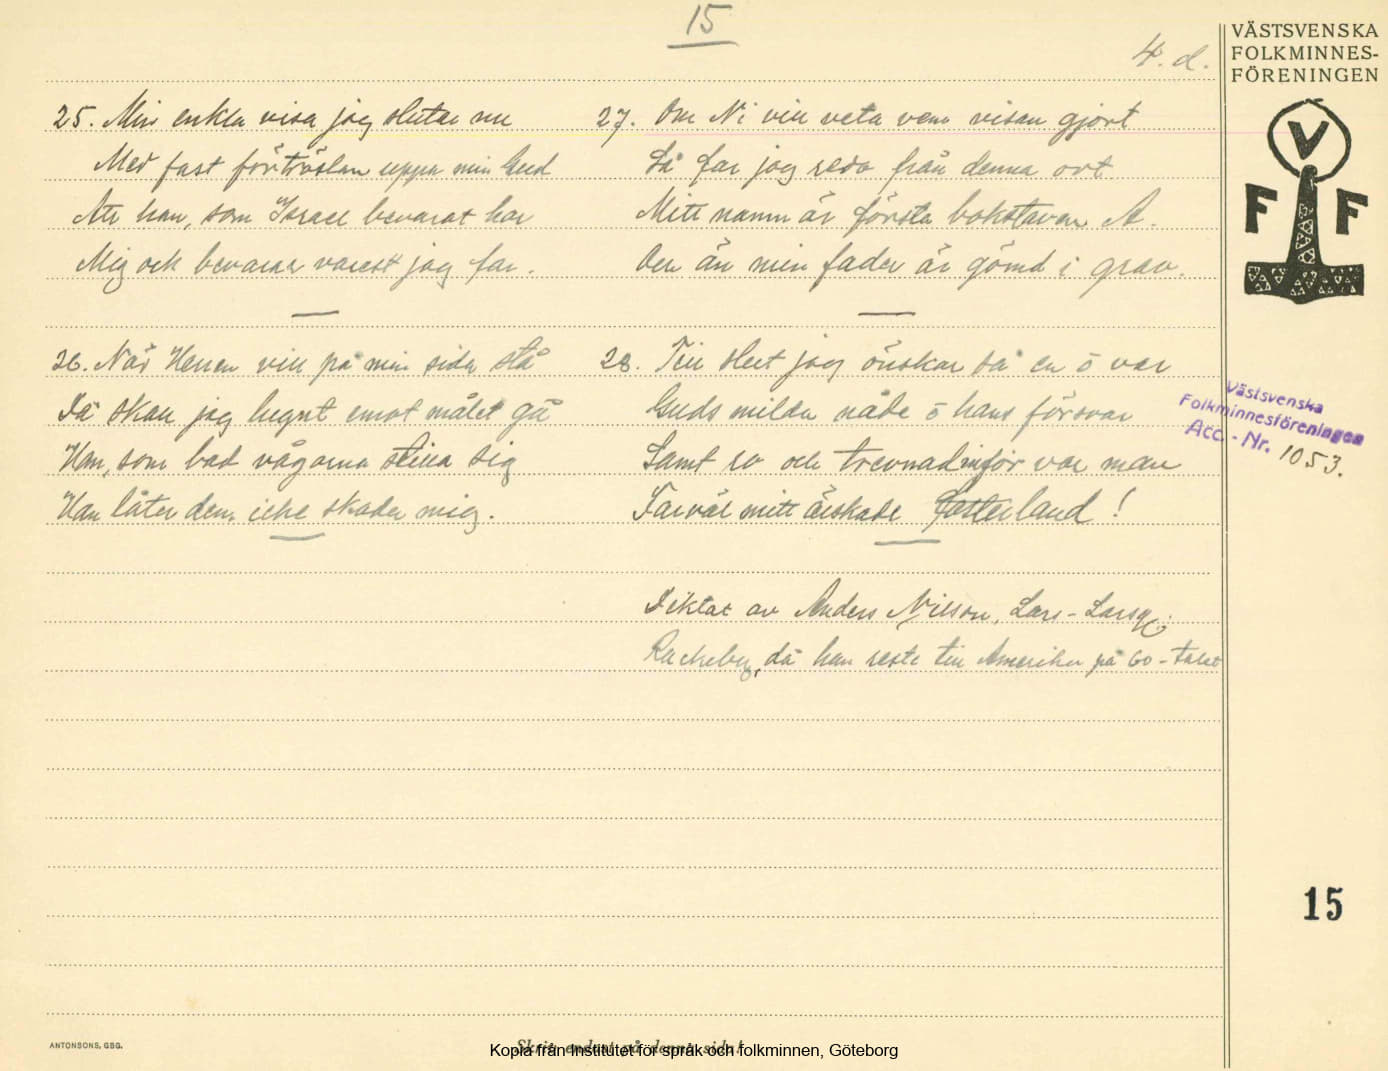 15
4. d.
VÄSTSVENSKA
FOLKMINNES-
FÖRENINGEN
V
F F
25. Min enkla visa jag slutar nu
Med fast förtröstan uppå min Gud
Att han, som Israel bevarat har
Mig ock bevarar varest jag far.
26. När Herren vill på min sida stå
Då skall jag lugnt emot målet gå
Han, som bad vågorna stilla sig
Han låter dem icke skada mig.
27. Om Ni vill veta vem visan gjort
Så far jag redo från denna ort
Mitt namn är första bokstaven A.
Den än min fader är gömd i grav.
28. Till slut jag önskar så en o var
Guds milda nåde o hans försvar
Samt ro och trevnad inför var man
Farväl mitt älskade fosterland!
Diktat av Anders Nilson, Lars-Larsg.
Rackeby, då han reste till Amerika på 60-talet
Västsvenska
Folkminnesföreningen
Acc. - Nr. 1053.
15
ANTONSONS, GBG.
Skriv endast på denna sida!
Kopia från Institutet för språk och folkminnen, Göteborg